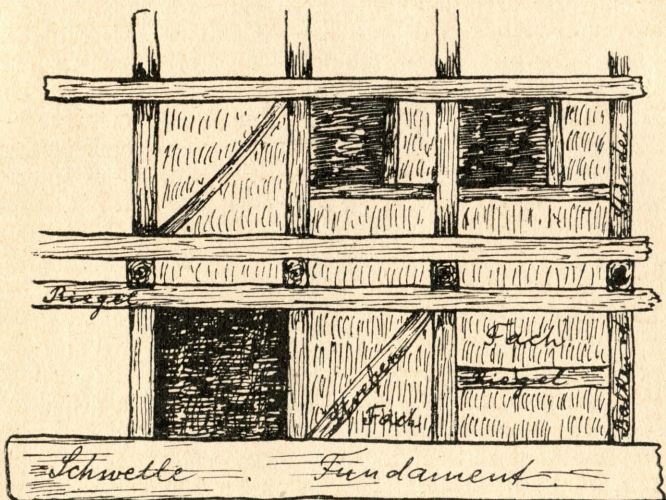 Ständer
Riegel
Fach
Riegel
Streben
Fach
Schwelle . Fundament.